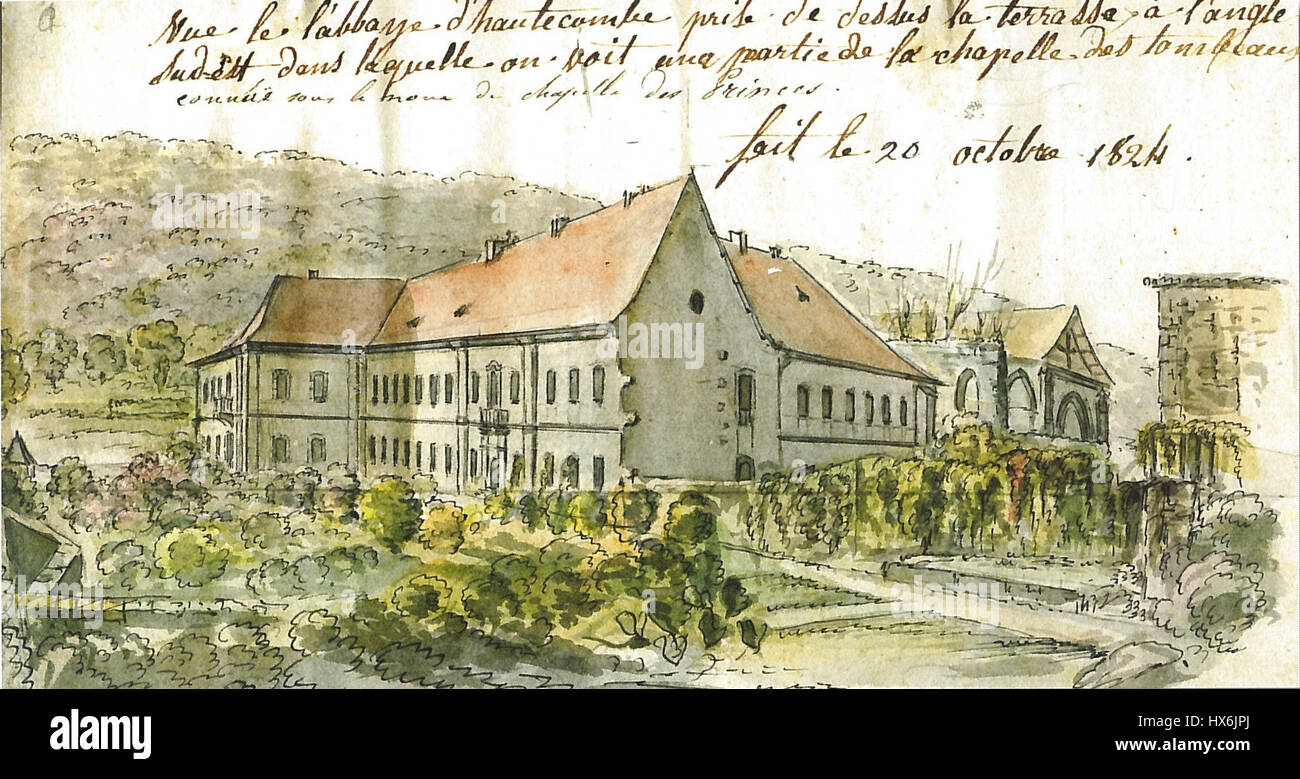 Vue le l'abbaye d'hautecombe prise de dessus la terrasse, à l'angle
sud-est, dans laquelle on voit une partie de la chapelle des tombeaux
connue sous le nom de chapelle des Princes.
fait le 20 octobre 1824.
a
alamy
a
alamy
a alamy stock photo
HX6JPJ
www.alamy.com